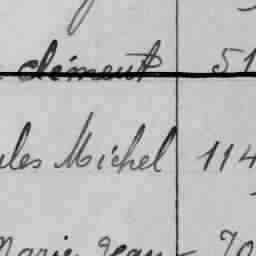 clément 51
ules Michel 114
Marie Jean - 70